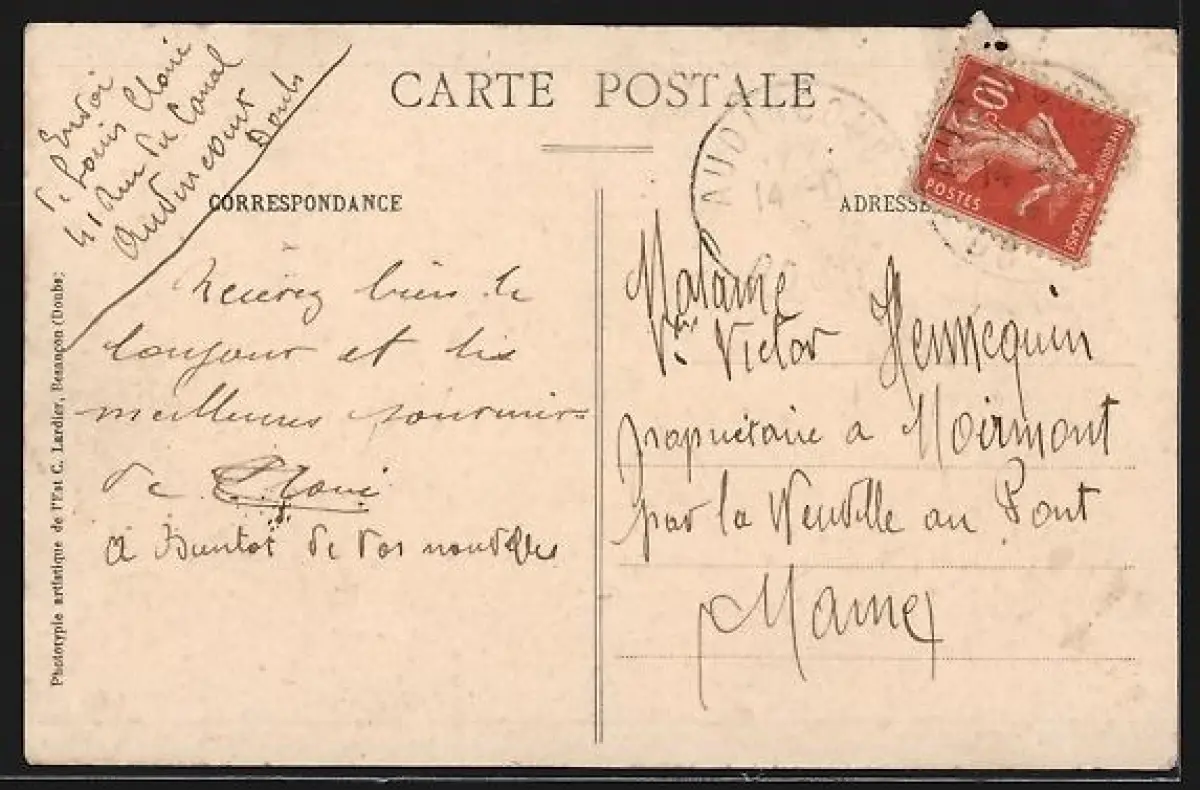 CARTE POSTALE
Envoi
de Louis Claire
41 Rue du Canal
Audincourt
Doubs
CORRESPONDANCE
Recevez bien le
bonjour et les
meilleures souvenirs
de
a Bientot de vos nouvelles
Phototypie artistique de l'Est C. Lardier, Besançon (Doubs)
AUDINCOURT
14
10c
POSTES
RÉPUBLIQUE FRANÇAISE
ADRESSE
Madame
Vve Victor Hennequin
propriétaire a Moirmont
par la Neuville au Pont
Marne